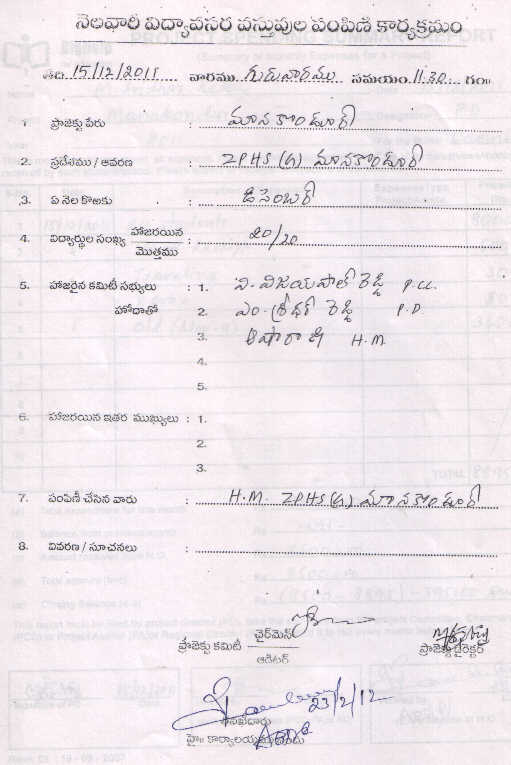 నెలవారి విద్యావసర వస్తువుల పంపిణి కార్యక్రమం
తేది 15/12/2011 వారము గురువారము సమయం 11.30 గం॥
1 ప్రాజెక్టు పేరు : మానకొండూర్
2. ప్రదేశము / ఆవరణ : ZPHS (G) మానకొండూర్
3. ఏ నెల కొఱకు : డిసెంబర్
4. విద్యార్థుల సంఖ్య హాజరయిన / మొత్తము : 20/20
5. హాజరైన కమిటీ సభ్యులు : 1. వి. విజయపాల్ రెడ్డి P.CC.
హోదాతో 2. ఎం. శ్రీధర్ రెడ్డి P.D.
3. ఉషారాణి H.M
4.
5.
6. హాజరయిన ఇతర ముఖ్యులు : 1.
2.
3.
7. పంపిణీ చేసిన వారు : H.M. ZPHS (G) మానకొండూర్
8. వివరణ / సూచనలు :
ప్రాజెక్టు కమిటీ చైర్‌మెన్ / ఆడిటర్
ప్రాజెక్టు డైరెక్టర్
23/2/12
తనిఖీదారు
హై॥ కార్యాలయ